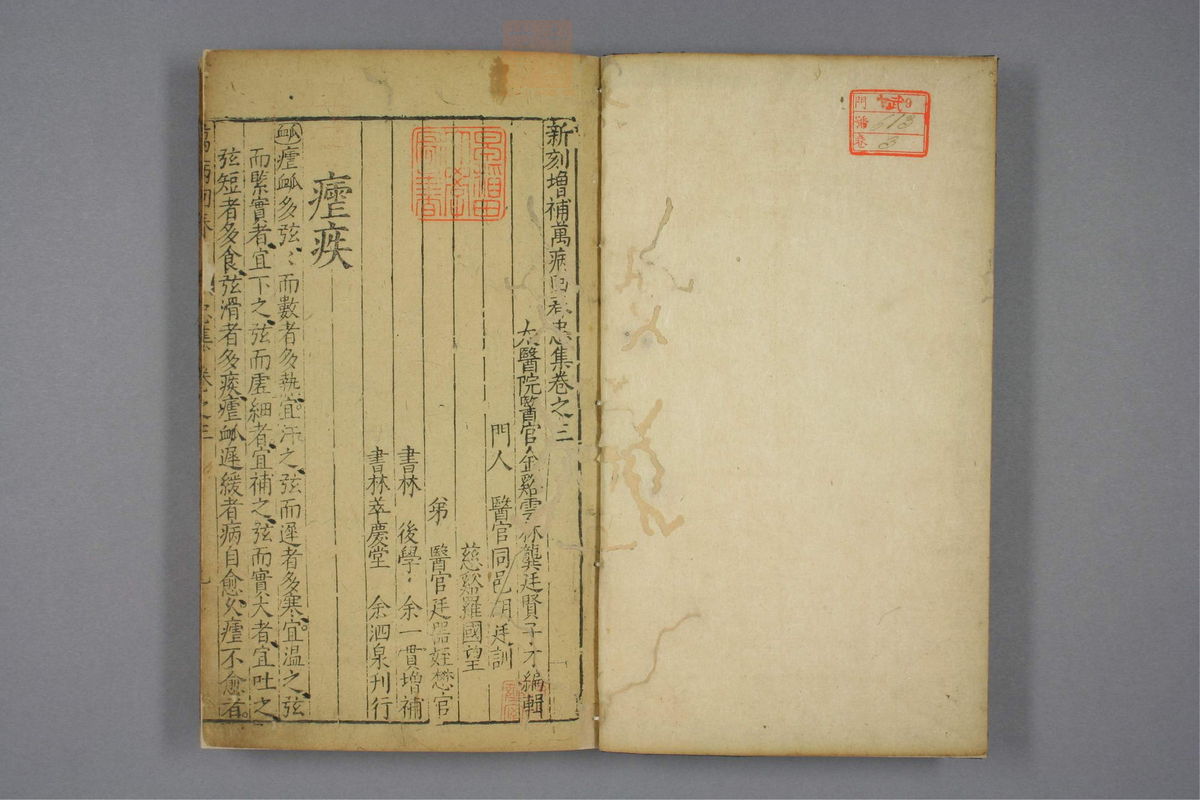 新刻增補萬病回春忠集卷之三
太醫院醫官金谿雲林龔廷賢子才編輯
門人 醫官同邑胡廷訓
慈谿羅國望
弟 醫官廷器姪懋官
書林 後學 余一貫增補
書林萃慶堂 余泗泉刊行
瘧疾
脉瘧脉多弦〻而數者多熱宜汗之弦而遲者多寒宜温之弦
而緊實者宜下之弦而虛細者宜補之弦而實大者宜吐之
弦短者多食弦滑者多痰瘧脉遲緩者病自愈久瘧不愈者
集 卷之三
門 9
號 613
卷 3